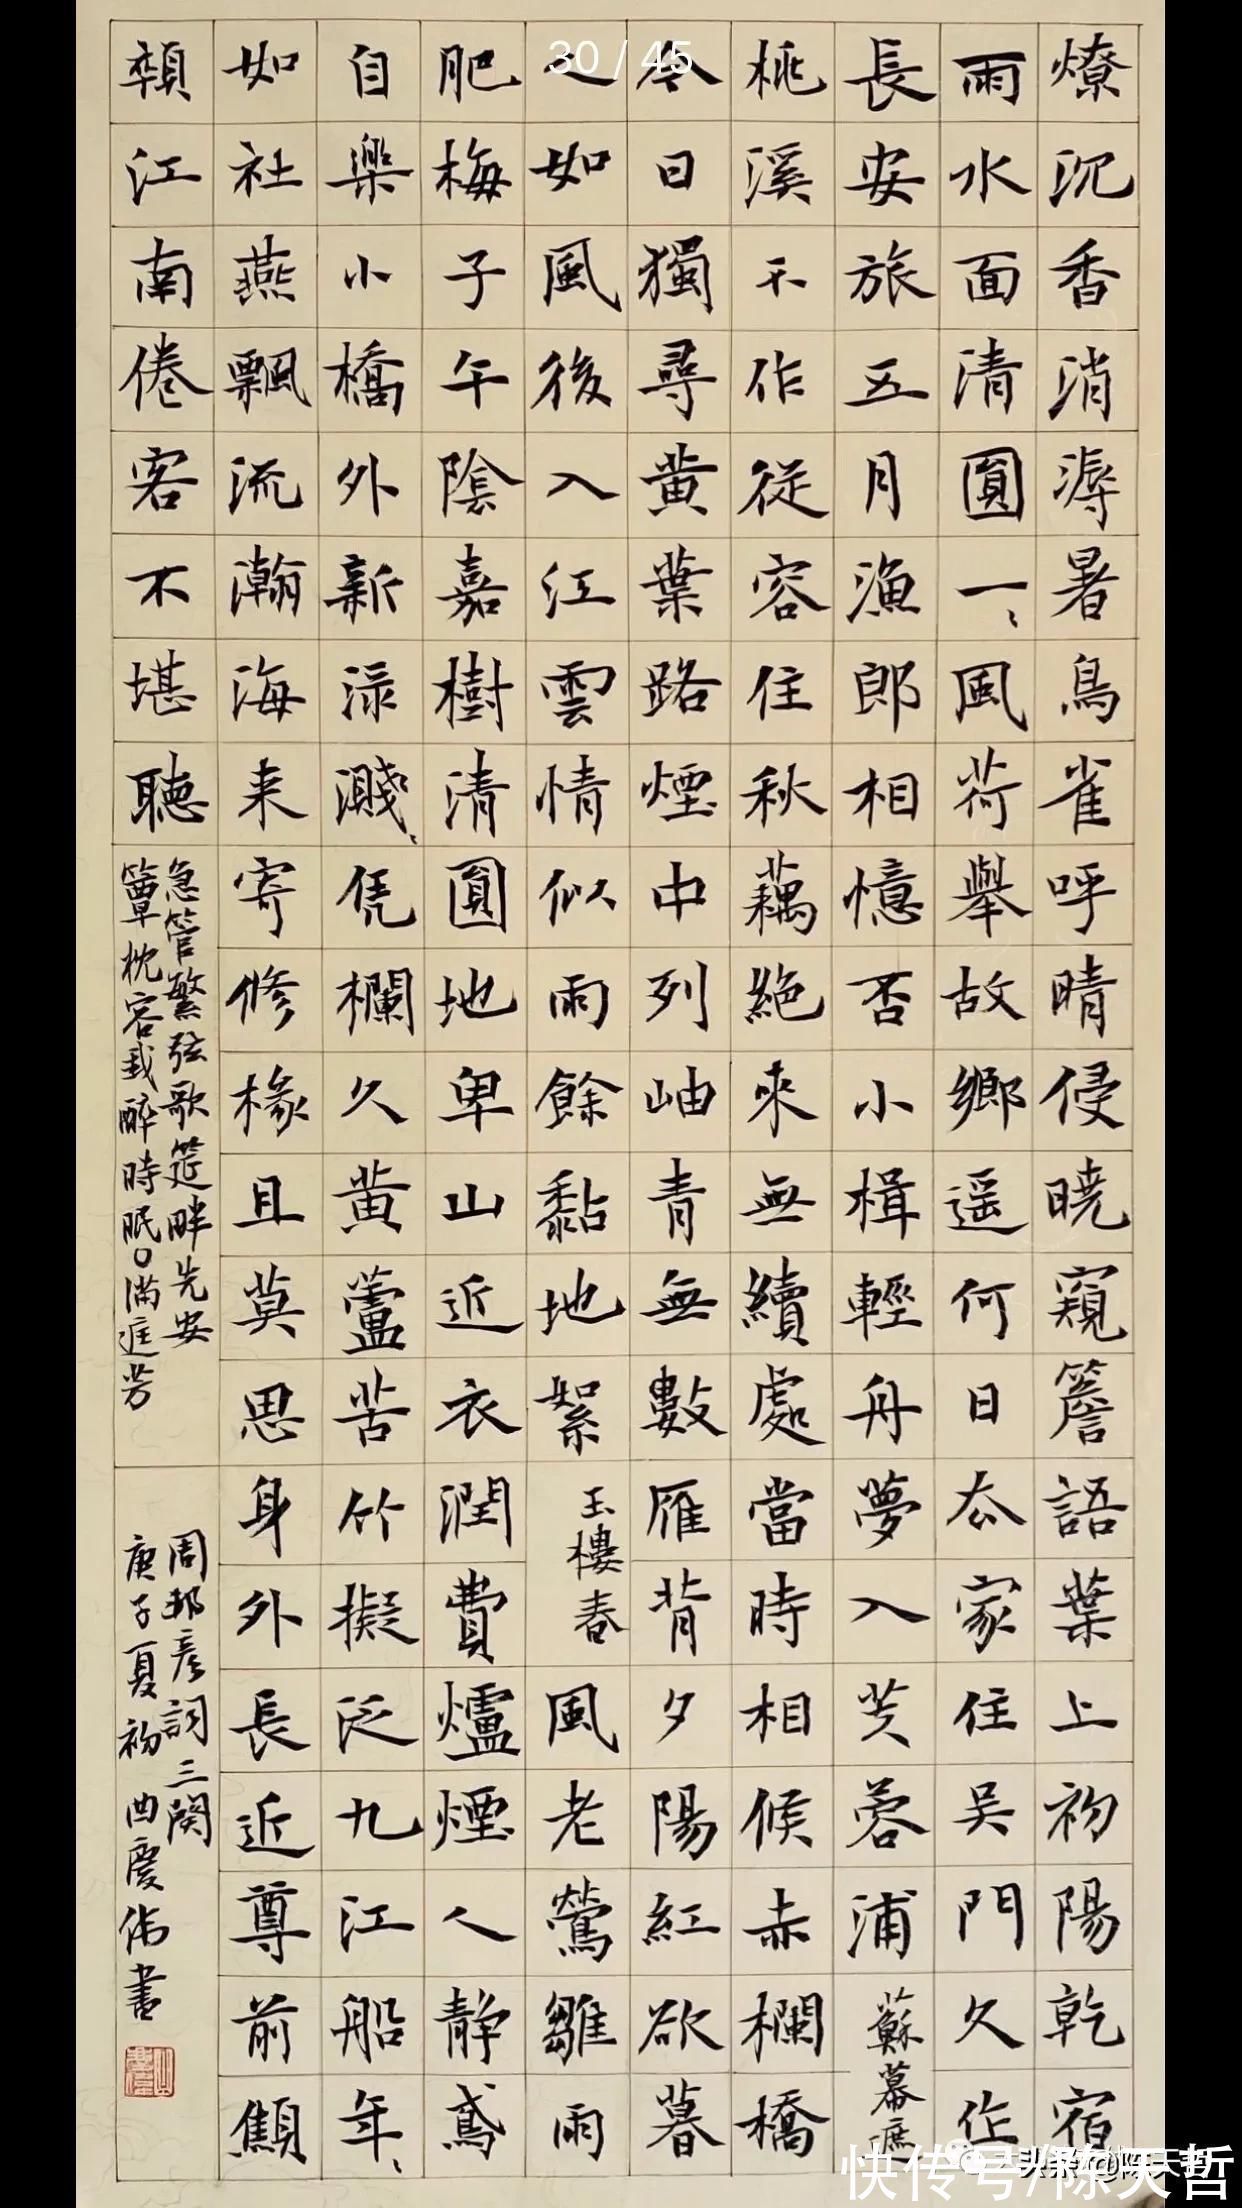 30 / 45
燎沉香消溽暑鳥雀呼晴侵曉窺簷語葉上初陽乾宿
雨水面清圓一、風荷舉故鄉遥何日厺家住吴門久作
長安旅五月漁郎相憶否小楫輕舟夢入芙蓉浦蘇幕遮
桃溪不作從容住秋藕絕來無續處當時相候赤欄橋
今日獨尋黄葉路煙中列岫青無數雁背夕陽紅欲暮
人如風後入江雲情似雨餘黏地絮玉樓春風老鶯雛雨
肥梅子午陰嘉樹清圓地卑山近衣潤費爐煙人静鳶
自樂小橋外新渌濺、凭欄久黄蘆苦竹擬泛九江船年、
如社燕飄流瀚海来寄修椽且莫思身外長近尊前憔
顇江南倦客不堪聽
急管繁弦歌筵畔先安
簟枕容我醉時眠○满庭芳
周邦彦詞三闋
庚子夏初曲慶伟書
快传号/陈天哲